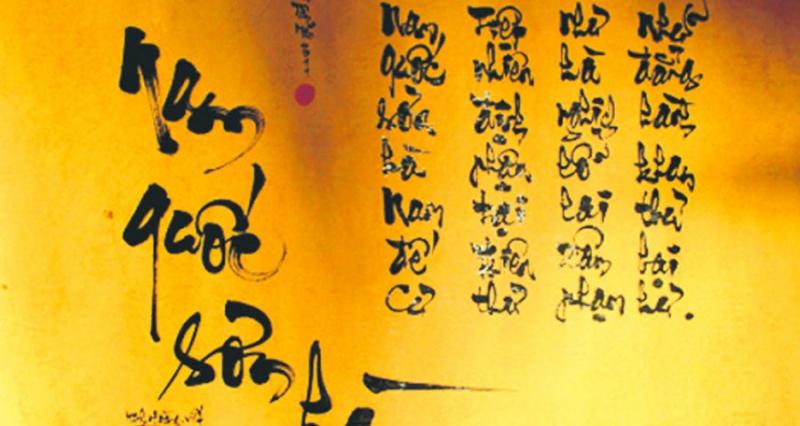 Nam
quốc
sơn
hà
Nam quốc sơn hà Nam đế cư
Tiệt nhiên định phận tại thiên thư
như hà nghịch lỗ lai xâm phạm
như đẳng hành khan thủ bại hư.